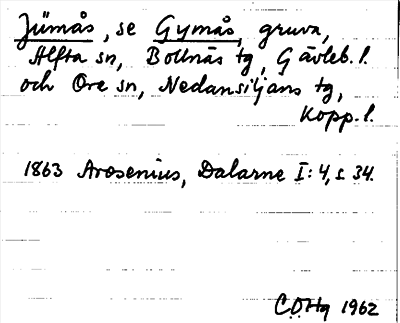 Jümås, se Gymås, gruva,
Alfta sn, Bollnäs tg, Gävleb. l.
och Ore sn, Nedansiljans tg,
Kopp. l.
1863 Arosenius, Dalarne I:4, s. 34.
C.O.Hg 1962